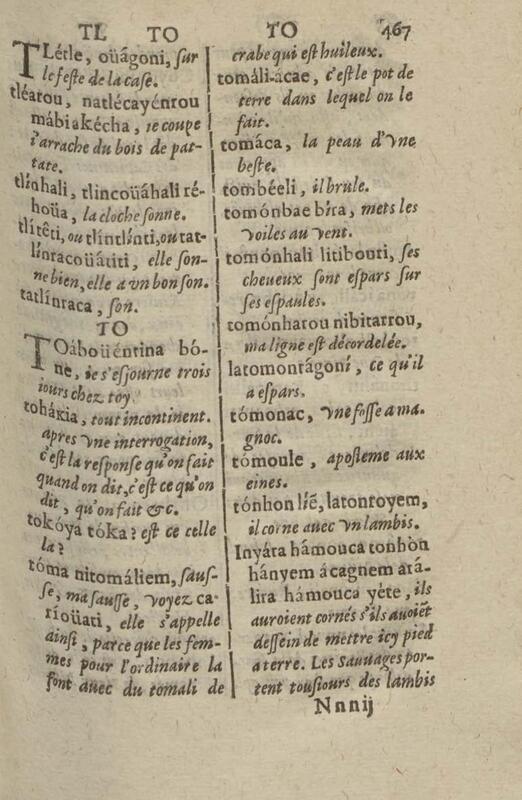 TL TO
TO 467
TLétle, oüágoni, sur
le feste de la case.
tléatou, natlécayénrou
mábiakécha, ie coupe
i'arrache du bois de pat-
tate.
tlínhali, tlincoüáhali ré-
hoüa, la cloche sonne.
tlítêti, ou tlíntlínti, ou tat-
línracoüátiti, elle son-
ne bien, elle a vn bon son.
tatlínraca, son.
TO
TOáboüéntina bó-
ne, ie s'esjourne trois
iours chez toy.
toháxia, tout incontinent.
apres vne interrogation,
c'est la response qu'on fait
quand on dit, c'est ce qu'on
dit, qu'on fait &c.
tokóya tóka? est ce celle
la?
tóma nitomáliem, saus-
se, ma sausse, voyez ca-
ríoüati, elle s'appelle
ainsi, parce que les fem-
mes pour l'ordinaire la
font auec du tomali de
crabe qui est huileux.
tomáli-ácae, c'est le pot de
terre dans lequel on le
fait.
tomáca, la peau d'vne
beste.
tombéeli, il brule.
tomónbae bíra, mets les
voiles au vent.
tomónhali litibouri, ses
cheueux sont espars sur
ses espaules.
tomónharou nibitarrou,
ma ligne est décordelée.
latomontágoní, ce qu'il
a espars.
tómonac, vne fosse a ma.
gnoc.
tómoule, aposteme aux
eines.
tónhon líẽ, latontoyem,
il corne auec vn lambis.
Inyára hámouca tonhòn
hányem ácagnem atá-
lira hámouca yéte, ils
auroient cornés s'ils auoiẽt
dessein de mettre icy pied
a terre. Les Sauuages por-
tent tousiours des lambis
Nnnij